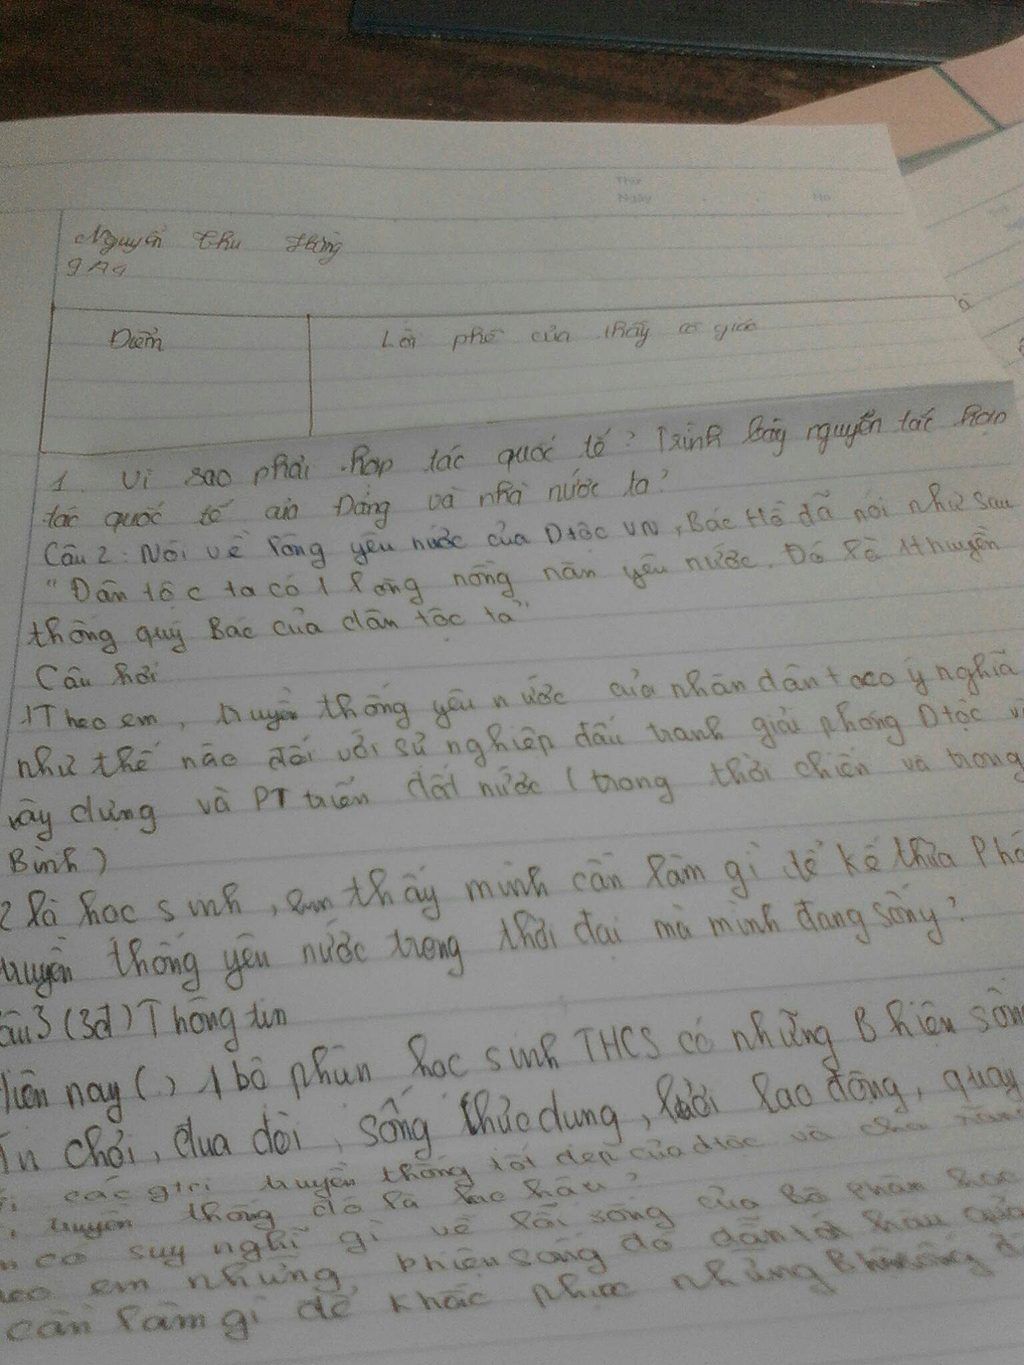 Thứ
Ngày No
Nguyễn Thu Hằng
9A4
Điểm Lời phê của thầy cô giáo
1. Vì sao phải hợp tác quốc tế? Trình bày nguyên tắc hợp
tác quốc tế của Đảng và nhà nước ta?
Câu 2: Nói về lòng yêu nước của Dtộc VN, Bác Hồ đã nói như sau
"Dân tộc ta có 1 lòng nồng nàn yêu nước. Đó là truyền
thống quý Báu của dân tộc ta"
Câu hỏi
1 Theo em, truyền thống yêu nước của nhân dân ta có ý nghĩa
như thế nào đối với sự nghiệp đấu tranh giải phóng Dtộc và
xây dựng và PT triển đất nước (trong thời chiến và trong
Bình)
2 là học sinh, em thấy mình cần làm gì để kế thừa
truyền thống yêu nước trong thời đại mà mình đang sống?
Câu 3 (3đ) Thông tin
Hiện nay (.) 1 bộ phận học sinh THCS có những B hiện
ăn chơi, đua đòi, sống thực dụng, lười lao động, quay
các giá truyền thống tốt đẹp của dtộc và cho rằng
truyền thống đó là lạc hậu?
có suy nghĩ gì về lối sống của bộ phận học
theo em những sống đó dẫn tới hậu quả
cần làm gì để khắc phục những B